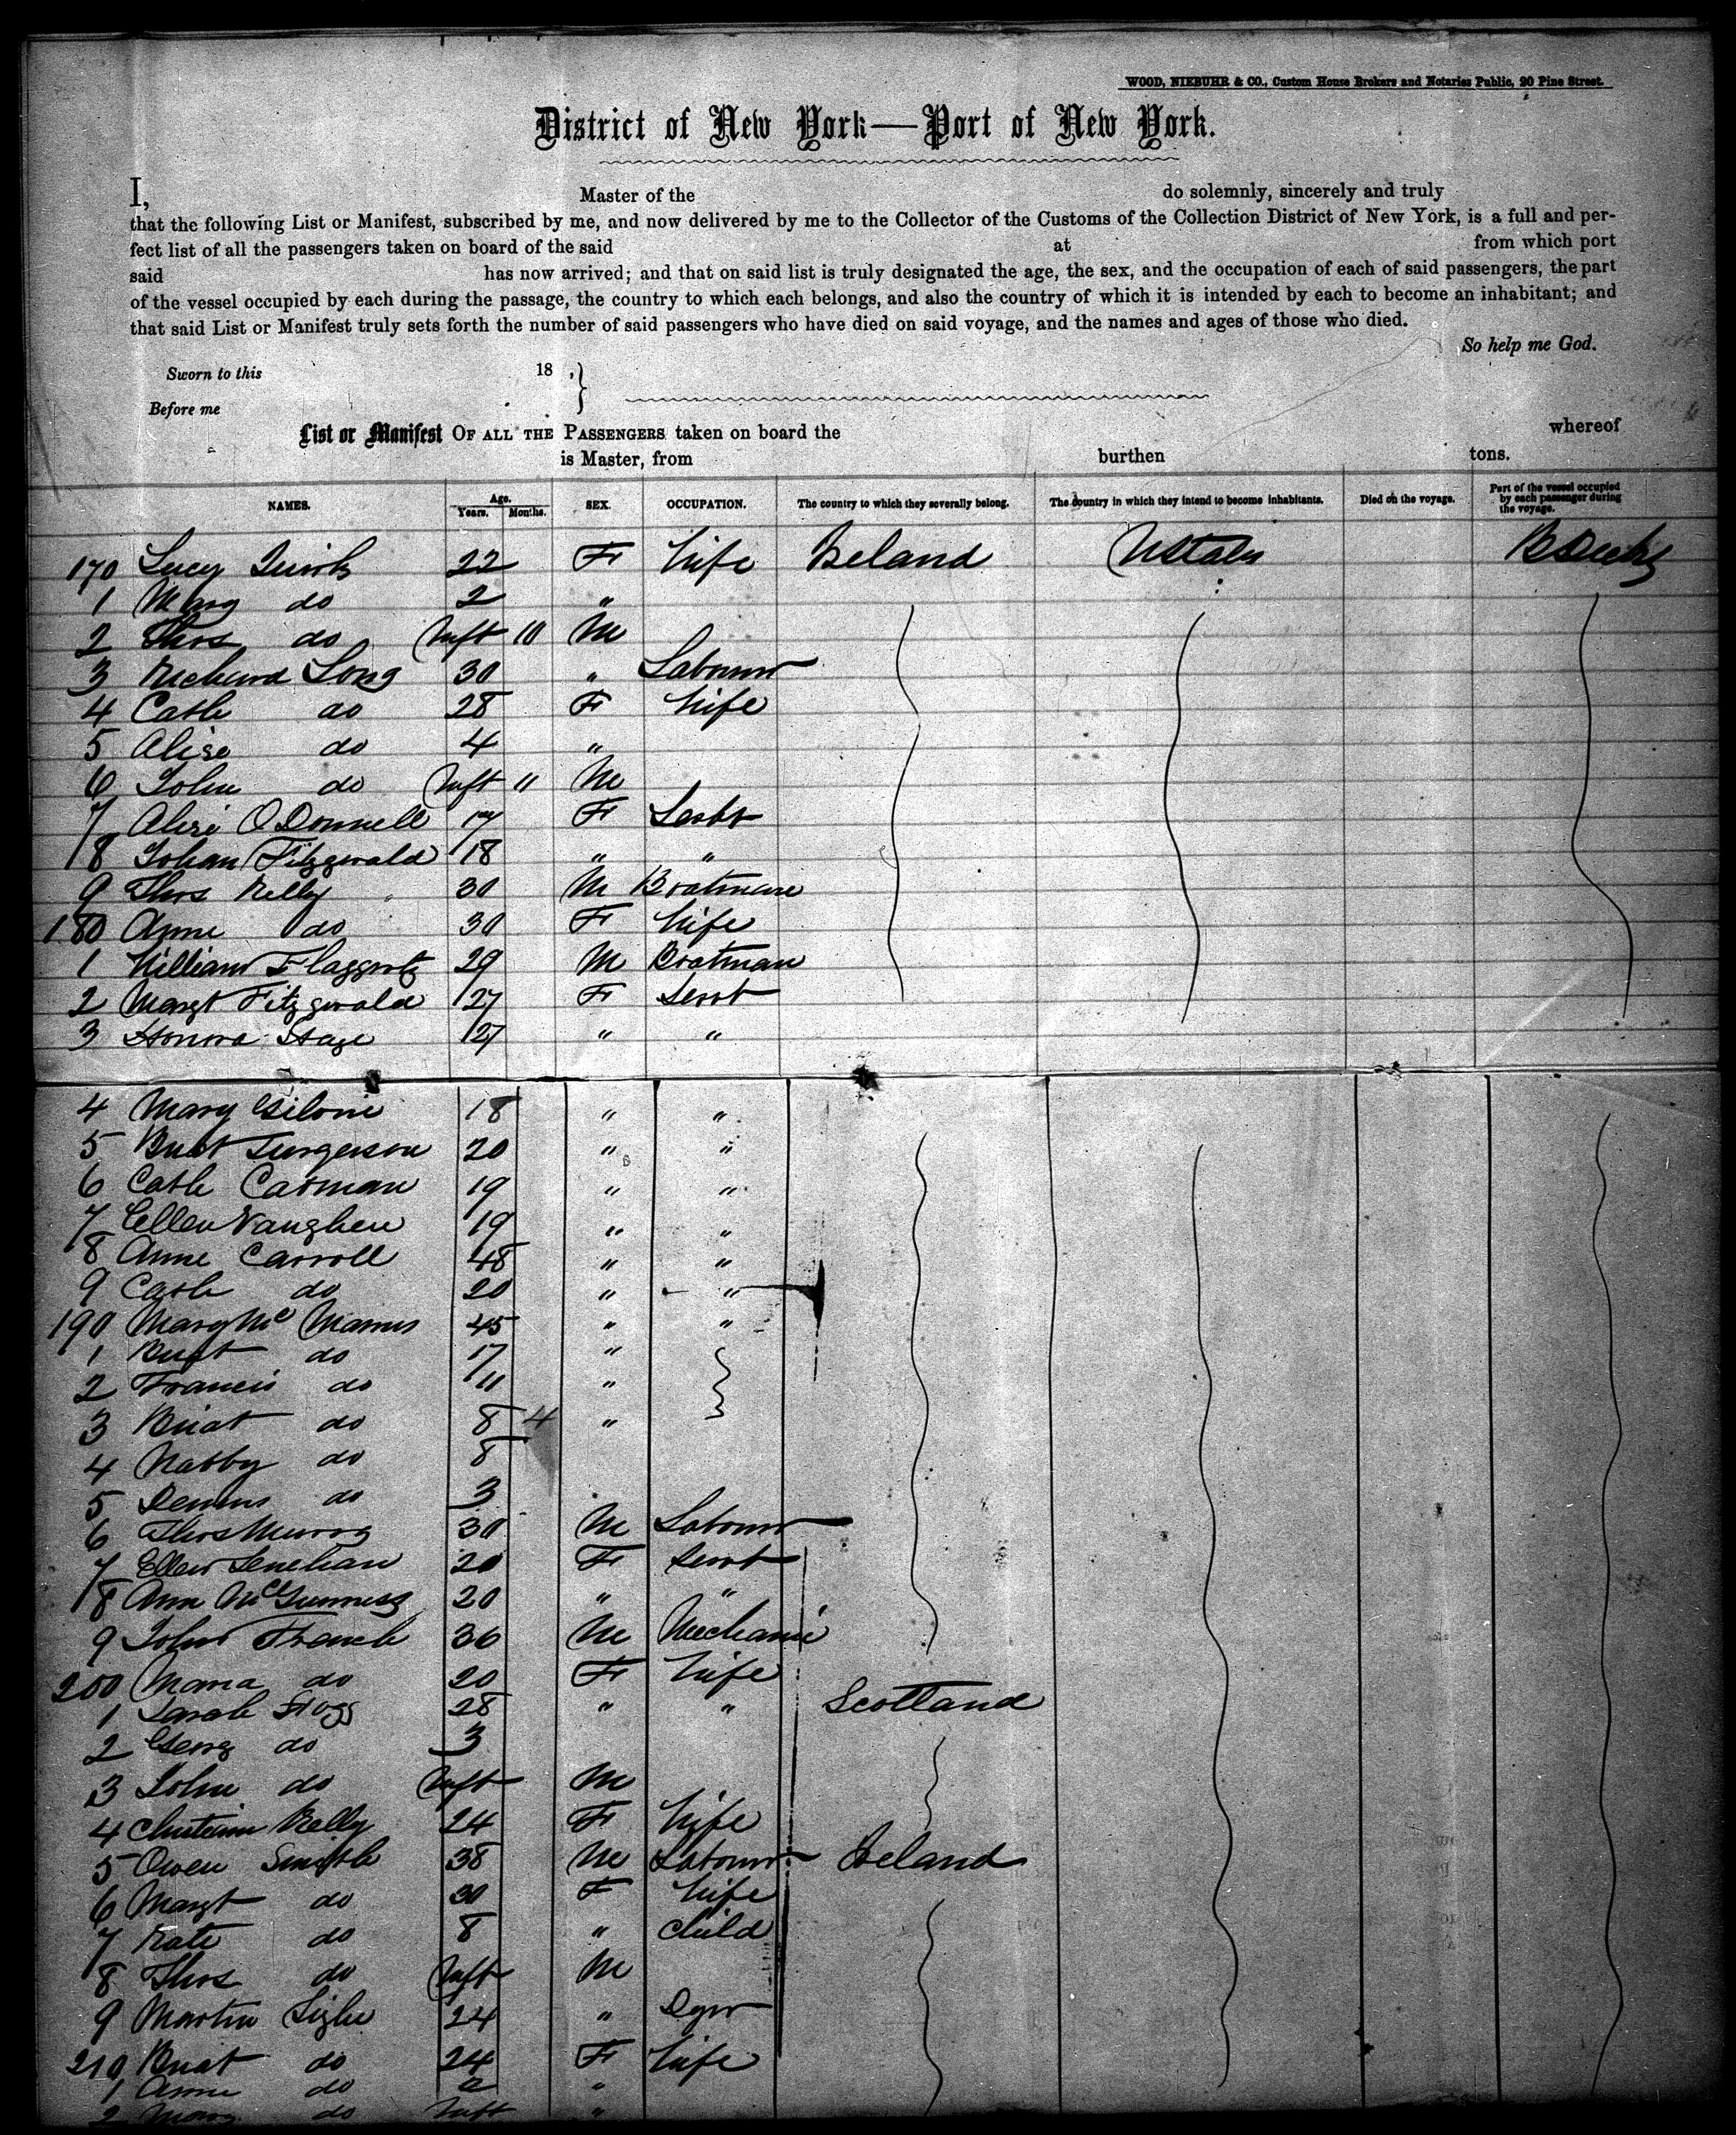 WOOD, NIEBUHR & CO., Custom House Brokers and Notaries Public, 20 Pine Street.
District of New York—Port of New York.
I, Master of the do solemnly, sincerely and truly
that the following List or Manifest, subscribed by me, and now delivered by me to the Collector of the Customs of the Collection District of New York, is a full and per-
fect list of all the passengers taken on board of the said at from which port
said has now arrived; and that on said list is truly designated the age, the sex, and the occupation of each of said passengers, the part
of the vessel occupied by each during the passage, the country to which each belongs, and also the country of which it is intended by each to become an inhabitant; and
that said List or Manifest truly sets forth the number of said passengers who have died on said voyage, and the names and ages of those who died.
So help me God.
Sworn to this 18 ,
Before me
List or Manifest OF ALL THE PASSENGERS taken on board the whereof
is Master, from burthen tons.
NAMES. Age. Years. Months. SEX. OCCUPATION. The country to which they severally belong. The country in which they intend to become inhabitants. Died on the voyage. Part of the vessel occupied by each passenger during the voyage.
170 Lucy Quirk 22 F Wife Ireland UStates
1 Mary do 2 "
2 Thos do Inft 10 M
3 Richard Long 30 " Labourer
4 Cath do 28 F Wife
5 Alise do 4 "
6 John do Inft 11 M
7 Alise O'Donnell 17 F
8 Johan Fitzgerald 18 " "
9 Thos Kelly 30 M Boatman
180 Anne do 30 F Wife
1 William 29 M Boatman
2 Margt Fitzgerald 27 F Servt
3 Honora 27 " "
4 Mary 18 " "
5 20 " "
6 Cath 19 " "
7 Ellen Vaughen 19 " "
8 Anne Carroll 48 " "
9 Cath do 20 " "
190 Mary Mc Manus 45 " "
1 do 17 "
2 Francis do 11 "
3 Bridt do 8 4 "
4 Nabby do 8
5 Dennis do 3
6 Thos Murray 30 M Labourer
7 Ellen Lenehan 20 F Servt
8 Ann McGunness 20 " "
9 John French 36 M Mechanic
200 Maria do 20 F Wife
1 Sarah Hogg 28 " " Scotland
2 Georg do 3
3 John do Inft M
4 Kelly 24 F Wife
5 Owen Smith 38 M Labourer Ireland
6 Margt do 30 F Wife
7 Kate do 8 " Child
8 Thos do Inft M
9 Martin 24 " Dyer
210 Bridt do 24 F Wife
1 Anne do 2 "
2 Mary do Inft "